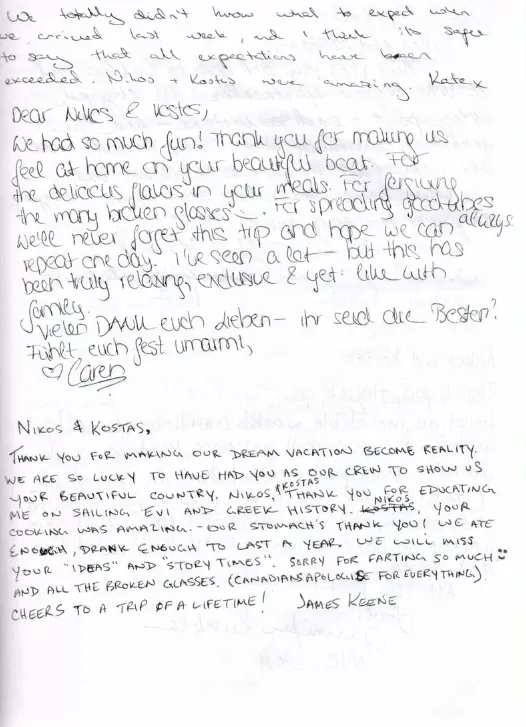 We totally didn't know what to expect when
we arrived last week, and I think its safe
to say that all expectations have been
exceeded. Nikos + Kostas were amazing. Kate x
Dear Nikos & Kostas,
We had so much fun! Thank you for making us
feel at home on your beautiful boat. For
the delicious flavors in your meals. For forgiving
the many broken glasses. For spreading good vibes
always
We'll never forget this trip and hope we can
repeat one day. I've seen a lot – but this has
been truly relaxing, exclusive & yet: like with
family.
Vielen DANK euch Lieben – ihr seid die Besten!
Fühlt euch fest umarmt,
♡ Caren
NIKOS & KOSTAS,
THANK YOU FOR MAKING OUR DREAM VACATION BECOME REALITY.
WE ARE SO LUCKY TO HAVE HAD YOU AS OUR CREW TO SHOW US
YOUR BEAUTIFUL COUNTRY. NIKOS, & KOSTAS THANK YOU FOR EDUCATING
ME ON SAILING EVI AND GREEK HISTORY. KOSTAS, NIKOS YOUR
COOKING WAS AMAZING. - OUR STOMACH'S THANK YOU! WE ATE
ENOUGH, DRANK ENOUGH TO LAST A YEAR. WE WILL MISS
YOUR "IDEAS" AND "STORY TIMES". SORRY FOR FARTING SO MUCH
AND ALL THE BROKEN GLASSES. (CANADIANS APOLOGISE FOR EVERYTHING).
CHEERS TO A TRIP OF A LIFETIME! JAMES KEENE